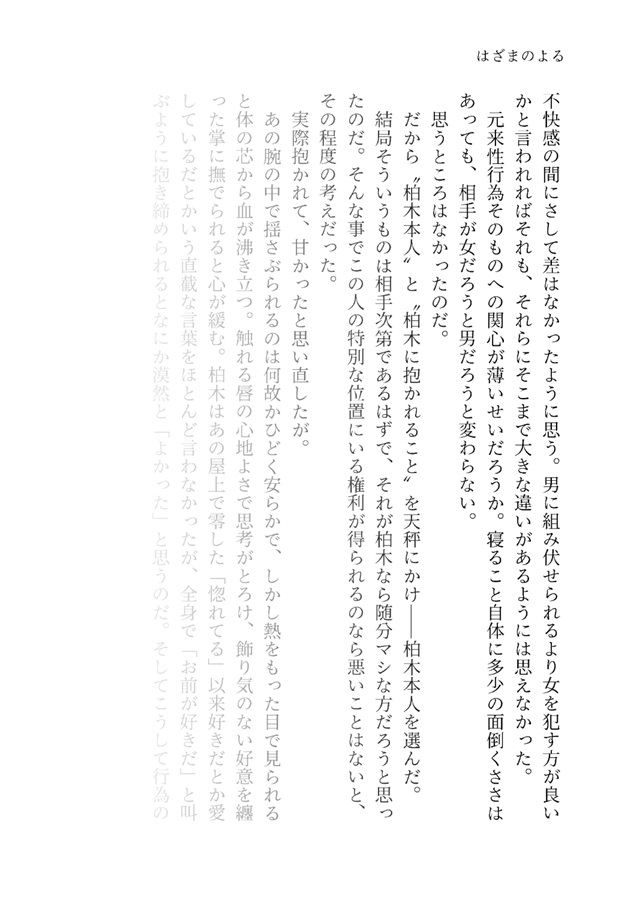 はざまのよる
不快感の間にさして差はなかったように思う。男に組み伏せられるより女を犯す方が良い
かと言われればそれも、それらにそこまで大きな違いがあるようには思えなかった。
元来性行為そのものへの関心が薄いせいだろうか。寝ること自体に多少の面倒くささは
あっても、相手が女だろうと男だろうと変わらない。
思うところはなかったのだ。
だから〝柏木本人〟と〝柏木に抱かれること〟を天秤にかけ――柏木本人を選んだ。
結局そういうものは相手次第であるはずで、それが柏木なら随分マシな方だろうと思っ
たのだ。そんな事でこの人の特別な位置にいる権利が得られるのなら悪いことはないと、
その程度の考えだった。
実際抱かれて、甘かったと思い直したが。
あの腕の中で揺さぶられるのは何故かひどく安らかで、しかし熱をもった目で見られる
と体の芯から血が沸き立つ。触れる唇の心地よさで思考がとろけ、飾り気のない好意を纏
った掌に撫でられると心が緩む。柏木はあの屋上で零した「惚れてる」以来好きだとか愛
しているだとかいう直截な言葉をほとんど言わなかったが、全身で「お前が好きだ」と叫
ぶように抱き締められるとなにか漠然と「よかった」と思うのだ。そしてこうして行為の